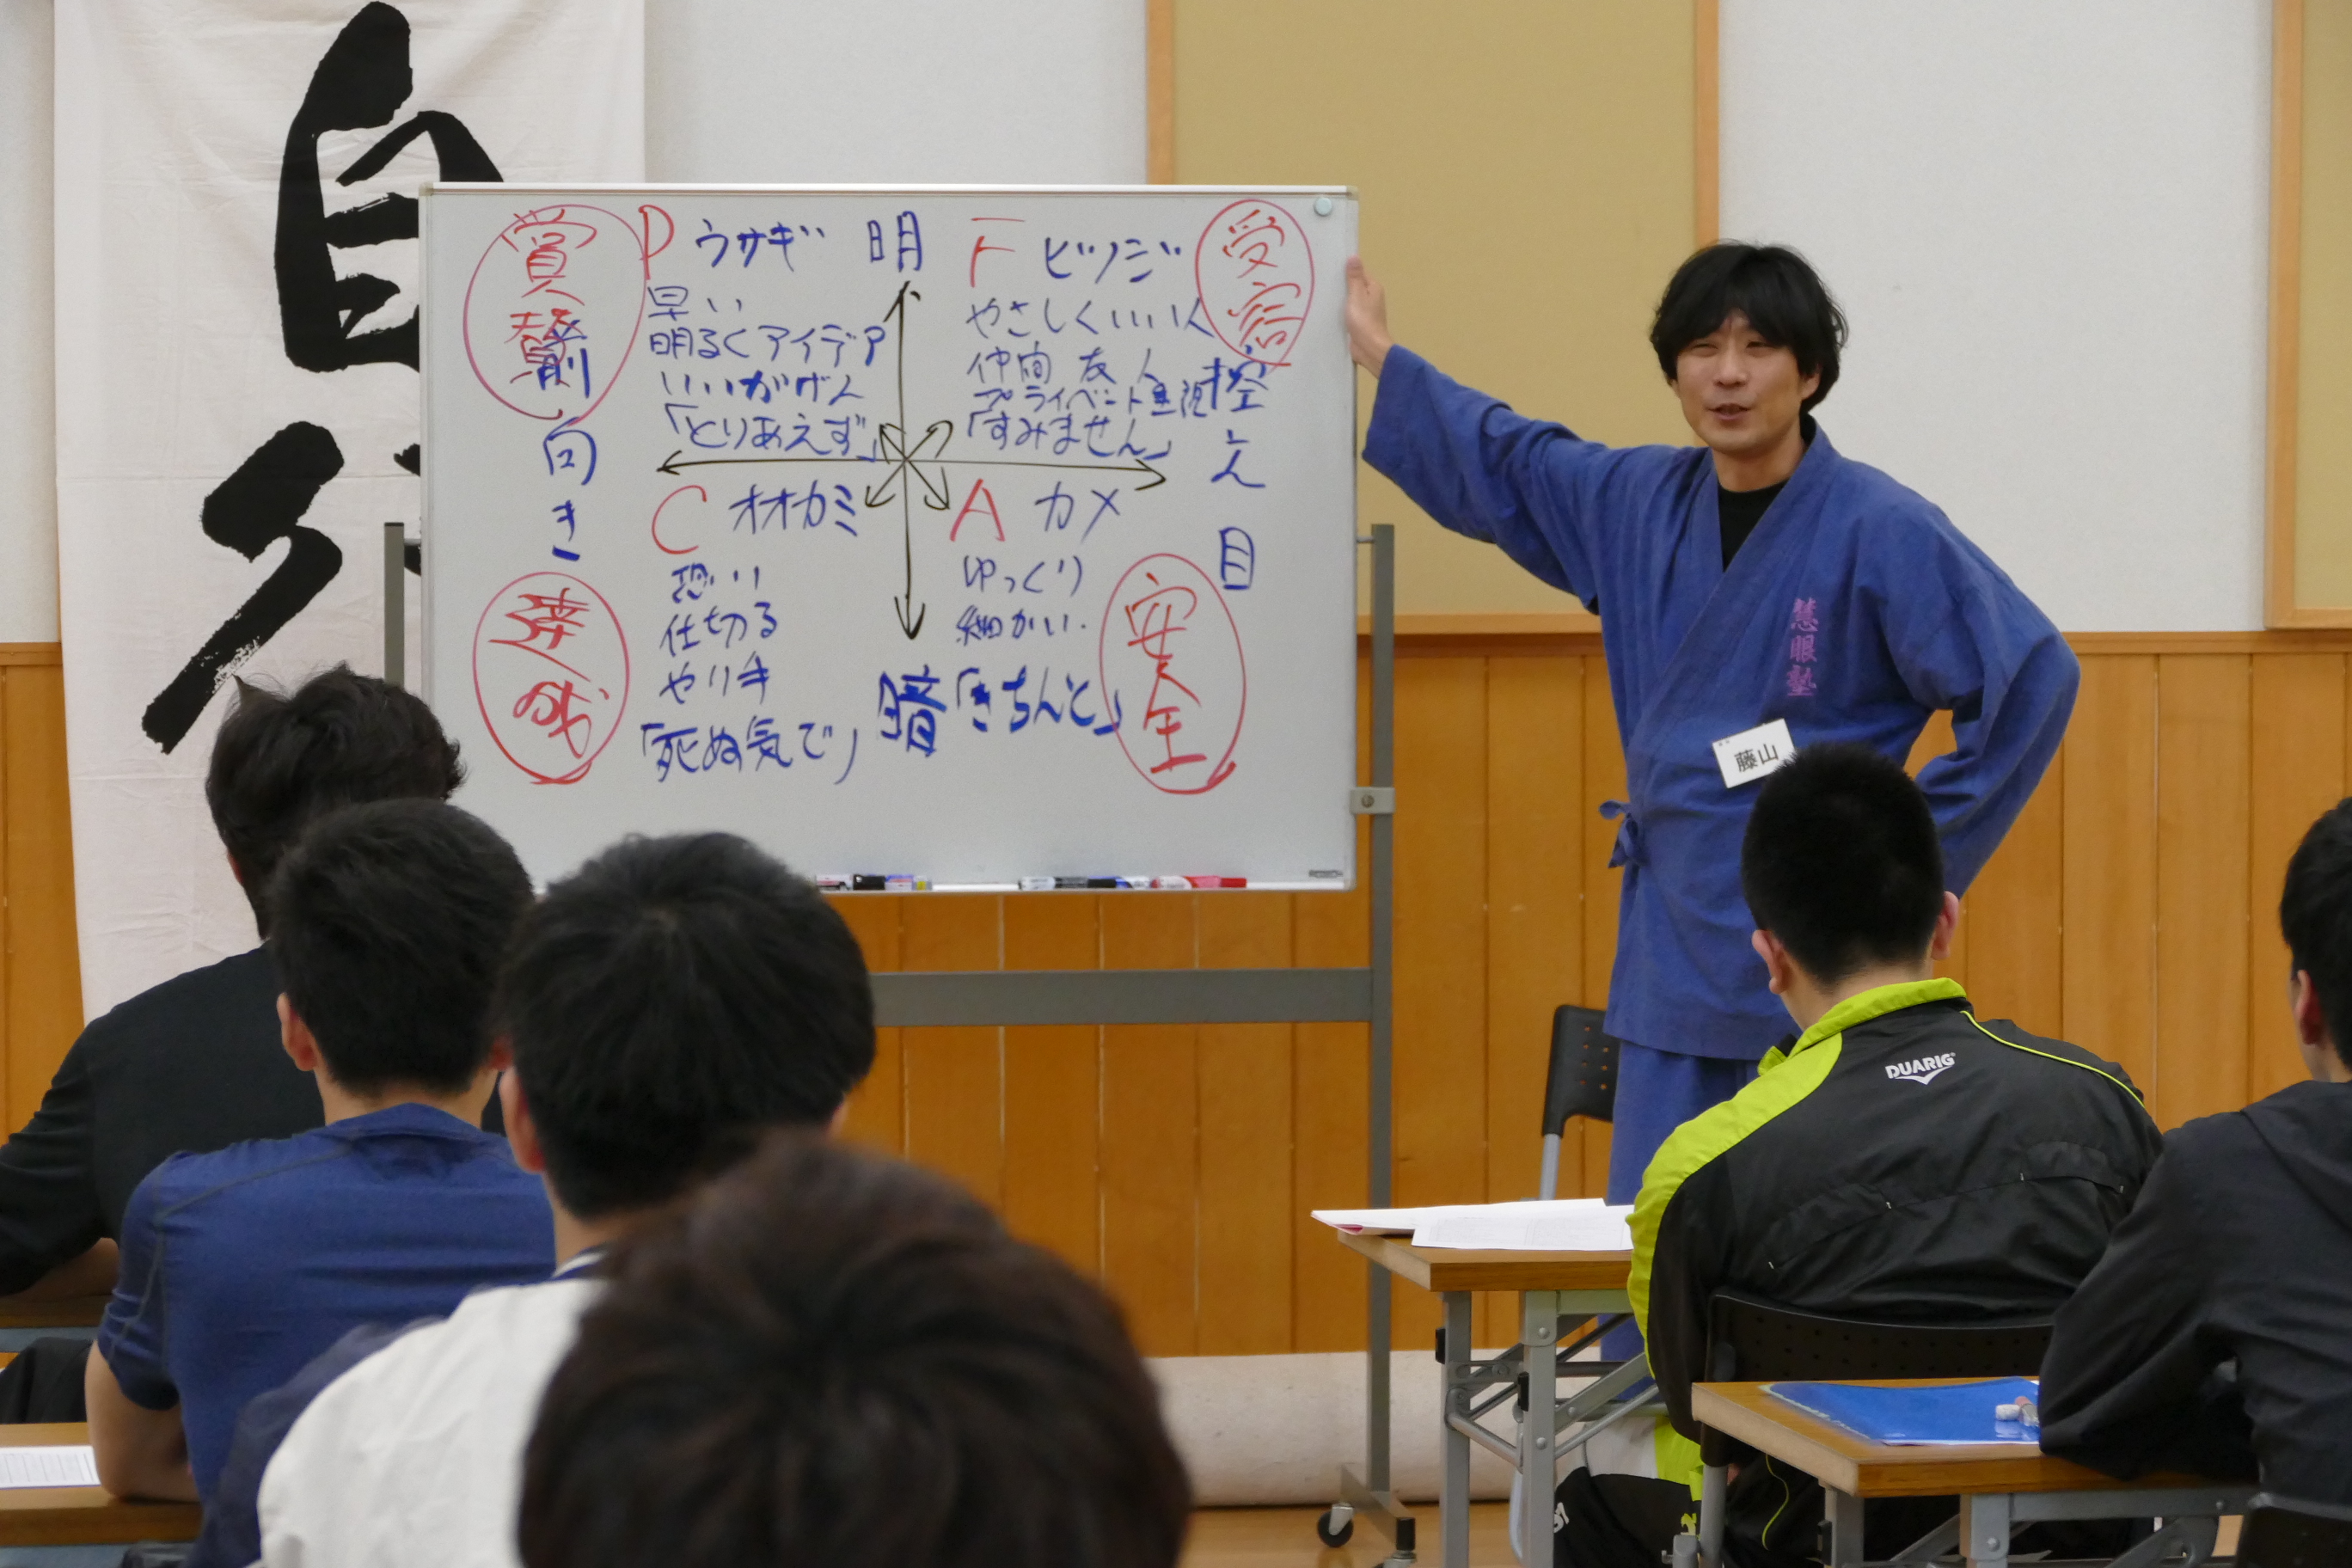 自分
賞賛
前向き
達成
P ウサギ
早い
明るくアイデア
いいかげん
「とりあえず」
明
F ヒツジ
やさしくいい人
仲間 友人
プライベート重視
「すみません」
受容
控え目
C オオカミ
恐い
仕切る
やりキ
「死ぬ気で」
暗
A カメ
ゆっくり
細かい.
「きちんと」
安全
慧眼塾
藤山
DUARIG